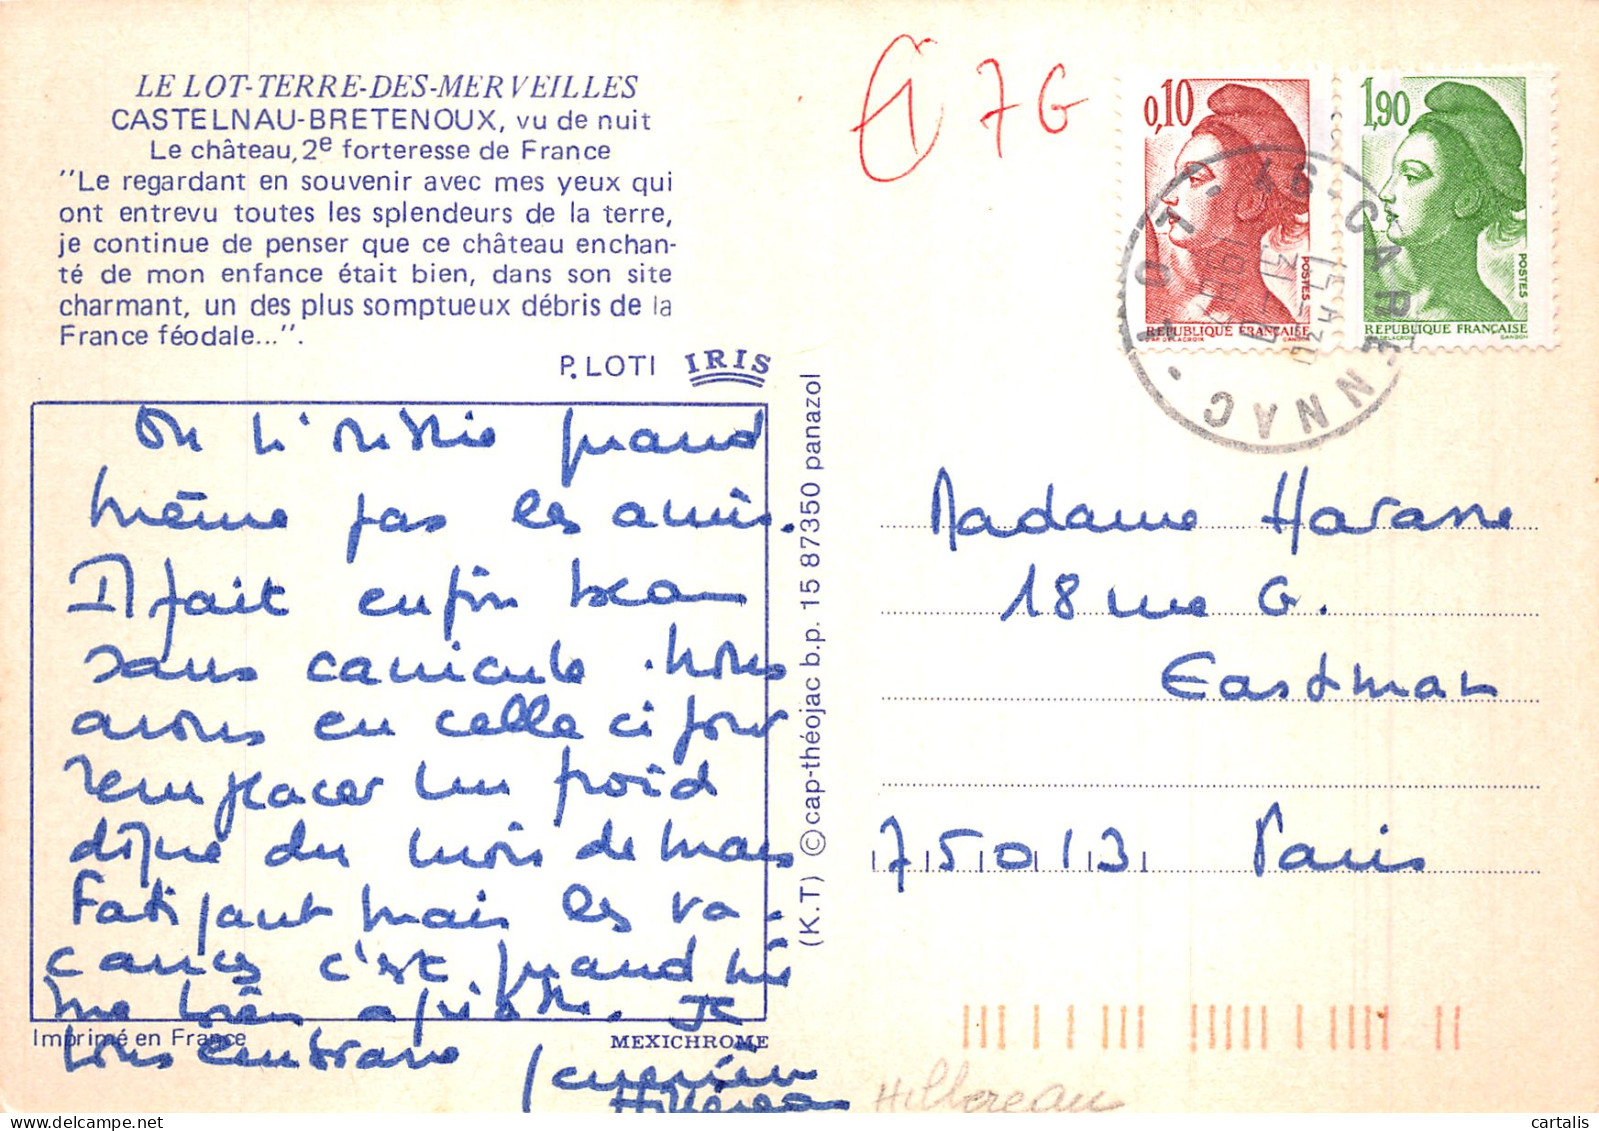 LE LOT-TERRE-DES-MERVEILLES
CASTELNAU-BRETENOUX, vu de nuit
Le château, 2e forteresse de France
"Le regardant en souvenir avec mes yeux qui
ont entrevu toutes les splendeurs de la terre,
je continue de penser que ce château enchan-
té de mon enfance était bien, dans son site
charmant, un des plus somptueux débris de la
France féodale...".
P. LOTI IRIS
On n'oublie quand
même pas les amis.
Il fait enfin beau
sans canicule. nous
avons eu celle ci pour
remplacer un froid
digne du mois de mars
Fatigant mais les va-
cances c'est quand
même bien agréable. Je
vous embrasse
Hilloreau
Imprimé en France
MEXICHROME
(K.T) © cap-théojac b.p. 15 87350 panazol
7G
0,10
POSTES
REPUBLIQUE FRANÇAISE
D'AP. DELACROIX GANDON
1,90
POSTES
REPUBLIQUE FRANÇAISE
D'AP. DELACROIX GANDON
46 CARENNAC
LOT
Madame Havasse
18 rue G.
Eastman
75013 Paris
Hilloreau
cartalis.com